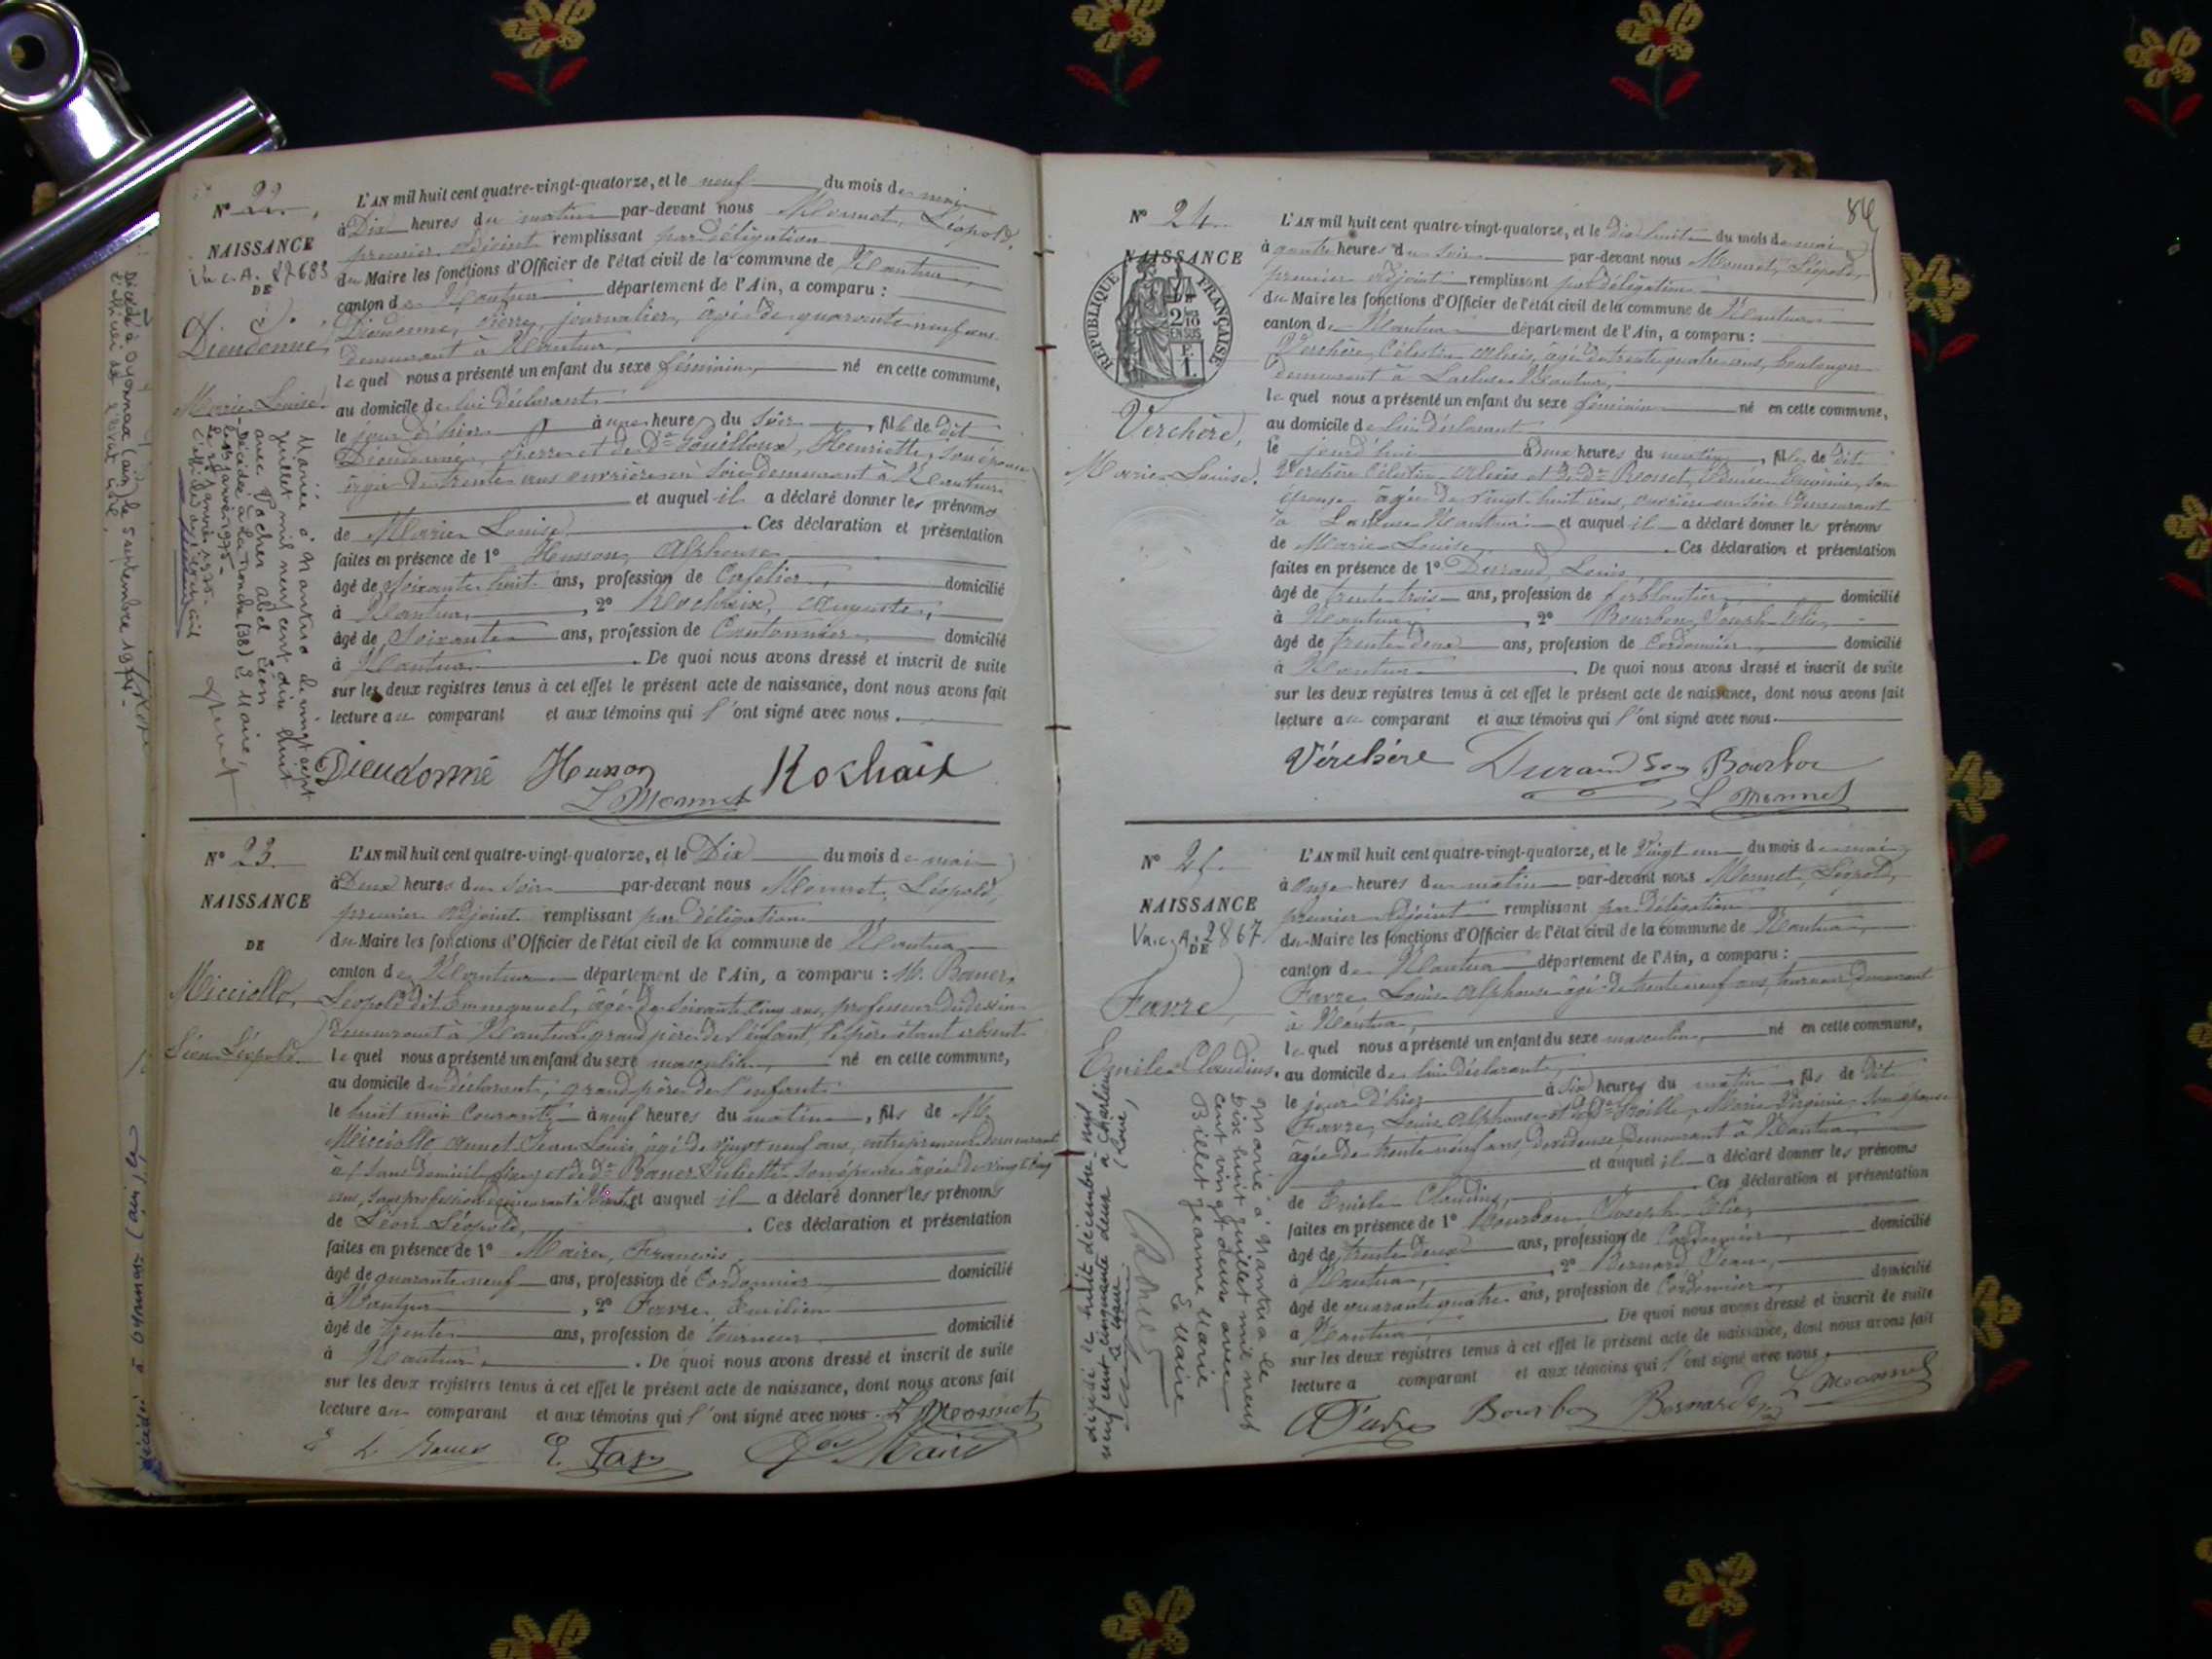 N° 22.
NAISSANCE
Vu c.A. 87683
DE
Dieudonné,
Marie Louise.
L'AN mil huit cent quatre-vingt-quatorze, et le neuf du mois de mai
à Dix heures du matin par-devant nous Monnet, Léopold,
premier adjoint remplissant par délégation
du Maire les fonctions d'Officier de l'état civil de la commune de Nantua,
canton de Nantua département de l'Ain, a comparu :
Dieudonné, Pierre, journalier, âgé de quarante neuf ans
demeurant à Nantua,
lequel nous a présenté un enfant du sexe féminin, né en cette commune,
au domicile de lui déclarant
le jour d'hier à une heure du soir, fille de dit
Dieudonné, Pierre et de De Gouilloux, Henriette, son épouse
âgée de trente ans ouvrière en soie demeurant à Nantua
et auquel il a déclaré donner les prénoms
de Marie Louise. Ces déclaration et présentation
faites en présence de 1° Husson, Alphonse
âgé de soixante huit ans, profession de Cafetier, domicilié
à Nantua, 2° Rochaix, Auguste,
âgé de soixante ans, profession de Cantonnier, domicilié
à Nantua. De quoi nous avons dressé et inscrit de suite
sur les deux registres tenus à cet effet le présent acte de naissance, dont nous avons fait
lecture au comparant et aux témoins qui l'ont signé avec nous.
Dieudonné Husson Rochaix
L Monnet
Mariée à Nantua le vingt sept
juillet mil neuf cent dix huit
avec Vacher Abel Léon
Décédée à La Tronche (38)
le 25 janvier 1975.
Le Maire,
décédé à Oyonnax (Ain) le 5 septembre 1974.
L'officier de l'état civil,
N° 23.
NAISSANCE
DE
Micciollo,
Léon Léopold.
L'AN mil huit cent quatre-vingt-quatorze, et le Dix du mois de mai
à Deux heures du soir par-devant nous Monnet, Léopold,
premier adjoint remplissant par délégation
du Maire les fonctions d'Officier de l'état civil de la commune de Nantua
canton de Nantua département de l'Ain, a comparu : M.
Léopold dit Emmanuel, âgé de soixante cinq ans, professeur de dessin
demeurant à Nantua grand père de l'enfant, le père étant absent
lequel nous a présenté un enfant du sexe masculin, né en cette commune,
au domicile du déclarant, grand père de l'enfant
le huit mai courant, à neuf heures du matin, fils de M.
Micciollo Jean Louis, âgé de vingt neuf ans, entrepreneur demeurant
à sans domicile fixe et de De Juliette son épouse âgée de vingt cinq
ans, sans profession demeurant à et auquel il a déclaré donner les prénoms
de Léon Léopold, Ces déclaration et présentation
faites en présence de 1° Maire, François
âgé de quarante neuf ans, profession de Cordonnier domicilié
à Nantua, 2° Favre, Emilien
âgé de trente ans, profession de tourneur domicilié
à Nantua. De quoi nous avons dressé et inscrit de suite
sur les deux registres tenus à cet effet le présent acte de naissance, dont nous avons fait
lecture au comparant et aux témoins qui l'ont signé avec nous. L Monnet
Maire
décédé à Oyonnax (Ain) le
84
N° 24.
NAISSANCE
RÉPUBLIQUE FRANÇAISE
Verchère,
Marie Louise.
L'AN mil huit cent quatre-vingt-quatorze, et le dix huit du mois de mai
à quatre heures du soir par-devant nous Monnet, Léopold,
premier adjoint remplissant par délégation
du Maire les fonctions d'Officier de l'état civil de la commune de Nantua
canton de Nantua département de l'Ain, a comparu :
Verchère, Célestin Alexis, âgé de trente quatre ans, boulanger
demeurant à Lacluse Nantua,
lequel nous a présenté un enfant du sexe féminin né en cette commune,
au domicile de lui déclarant
le jourd'hui à deux heures du matin, fille de dit
Verchère Célestin Alexis et de De Eugénie, son
épouse âgée de vingt huit ans, ouvrière en soie demeurant
à Lacluse Nantua et auquel il a déclaré donner les prénoms
de Marie Louise. Ces déclaration et présentation
faites en présence de 1° Durand, Louis,
âgé de trente trois ans, profession de ferblantier, domicilié
à Nantua, 2° Bourbon, Joseph Elie,
âgé de trente deux ans, profession de Cordonnier, domicilié
à Nantua. De quoi nous avons dressé et inscrit de suite
sur les deux registres tenus à cet effet le présent acte de naissance, dont nous avons fait
lecture au comparant et aux témoins qui l'ont signé avec nous.
Vérchère Durand Bourbon
L Monnet
N° 25.
NAISSANCE
Vu.c.A. 2867
DE
Favre,
Emile Claudius.
L'AN mil huit cent quatre-vingt-quatorze, et le Vingt un du mois de mai
à onze heures du matin par-devant nous Monnet, Léopold,
premier adjoint remplissant par délégation
du Maire les fonctions d'Officier de l'état civil de la commune de Nantua,
canton de Nantua département de l'Ain, a comparu :
Favre, Louis Alphonse âgé de trente neuf ans, tourneur demeurant
à Nantua,
lequel nous a présenté un enfant du sexe masculin, né en cette commune,
au domicile de lui déclarant,
le jour d'hier à six heures du matin, fils de dit
Favre, Louis Alphonse et de De Marie Virginie son épouse
âgée de trente neuf ans, dévideuse demeurant à Nantua,
et auquel il a déclaré donner les prénoms
de Emile Claudius, Ces déclaration et présentation
faites en présence de 1° Bourbon Joseph Elie,
âgé de trente deux ans, profession de Cordonnier, domicilié
à Nantua, 2° Bernard Jean,
âgé de quarante quatre ans, profession de Cordonnier, domicilié
à Nantua De quoi nous avons dressé et inscrit de suite
sur les deux registres tenus à cet effet le présent acte de naissance, dont nous avons fait
lecture a comparant et aux témoins qui l'ont signé avec nous.
Bourbon Bernard L Monnet
Marié à Nantua le
dix huit juillet mil neuf
cent vingt deux avec
Billet Jeanne Marie
Le Maire
décédé le huit décembre mil
neuf cent cinquante deux à Charlieu
(Loire)